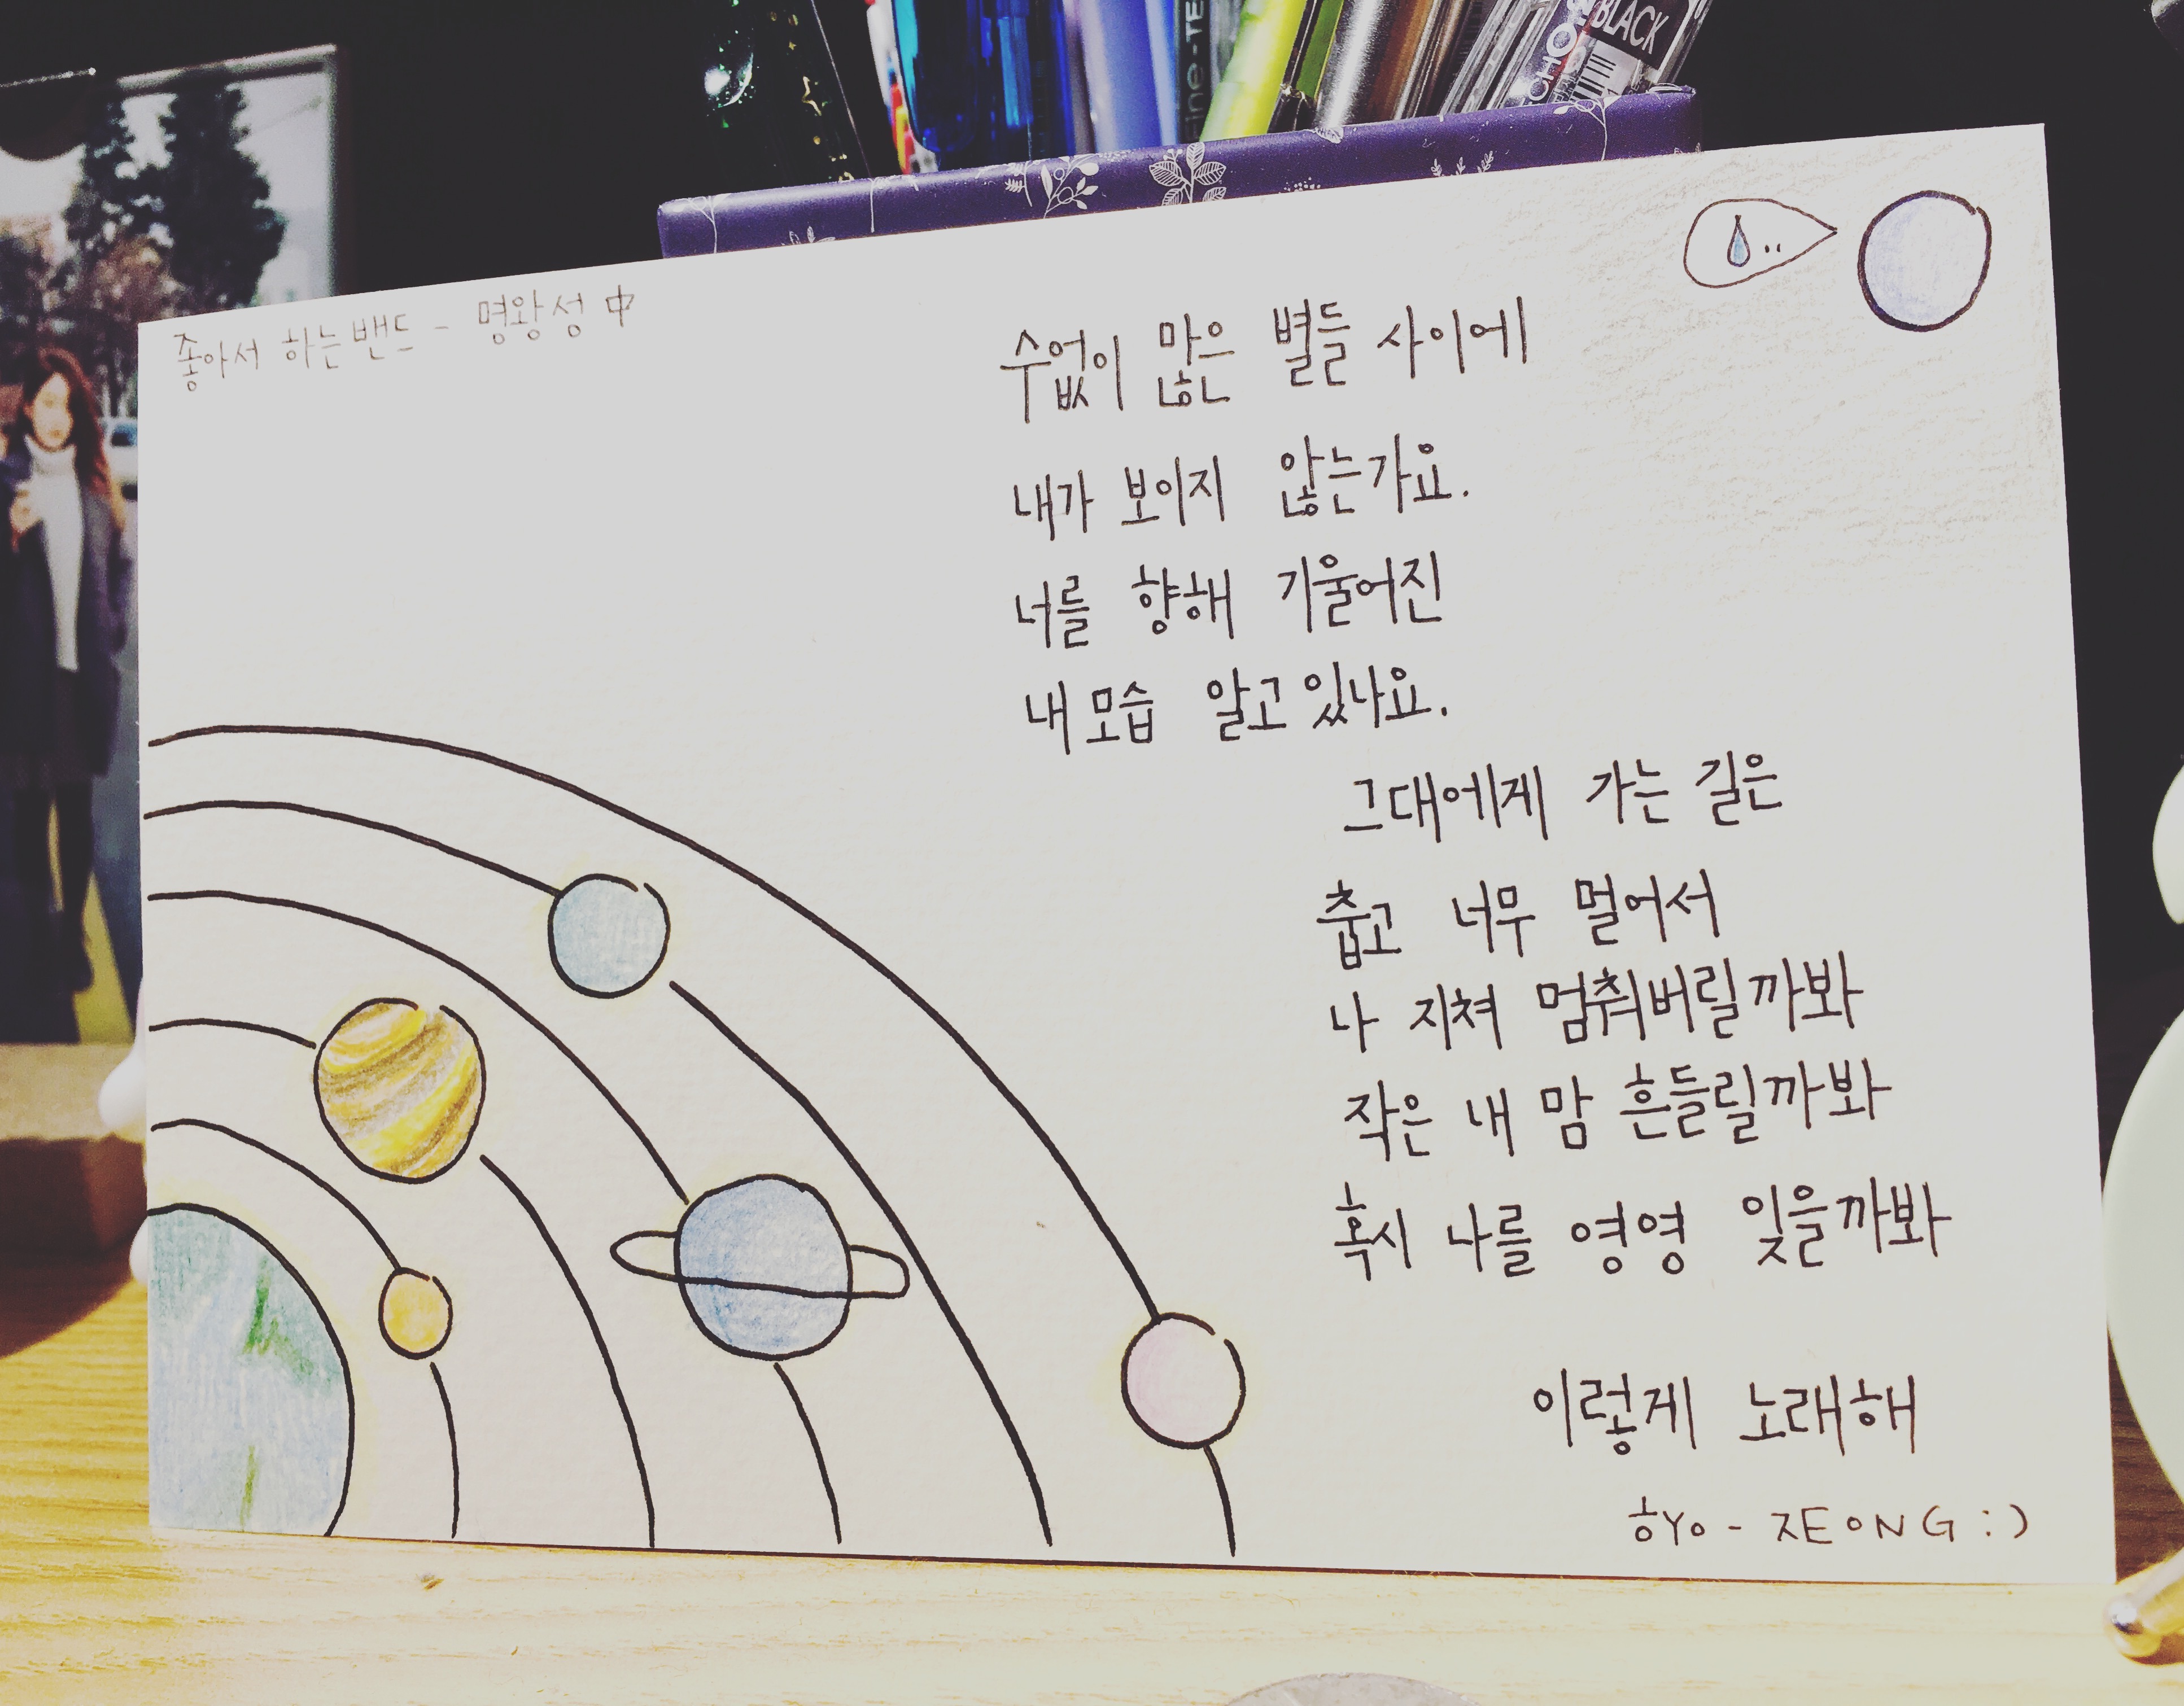 BLACK
좋아서 하는밴드 - 명왕성 中
수없이 많은 별들 사이에
내가 보이지 않는가요.
너를 향해 기울어진
내 모습 알고있나요.
그대에게 가는 길은
춥고 너무 멀어서
나 지쳐 멈춰버릴까봐
작은 내 맘 흔들릴까봐
혹시 나를 영영 잊을까봐
이렇게 노래해
ㅎYO - ㅈEONG :)